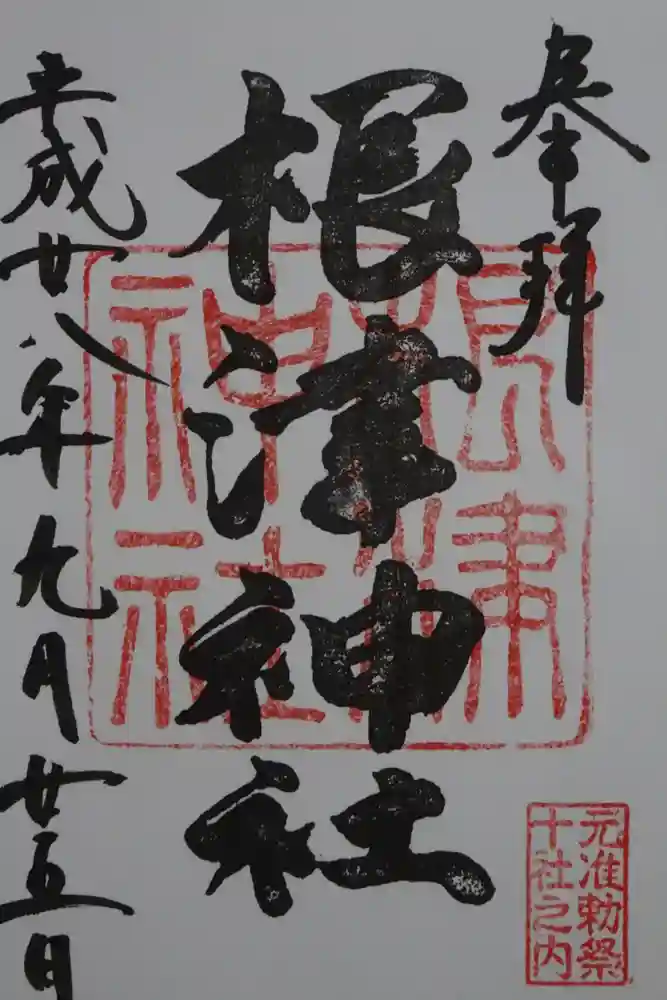 奉拝
根津神社
平成廿八年九月廿五日
根津
神社
元准勅祭
十社之内